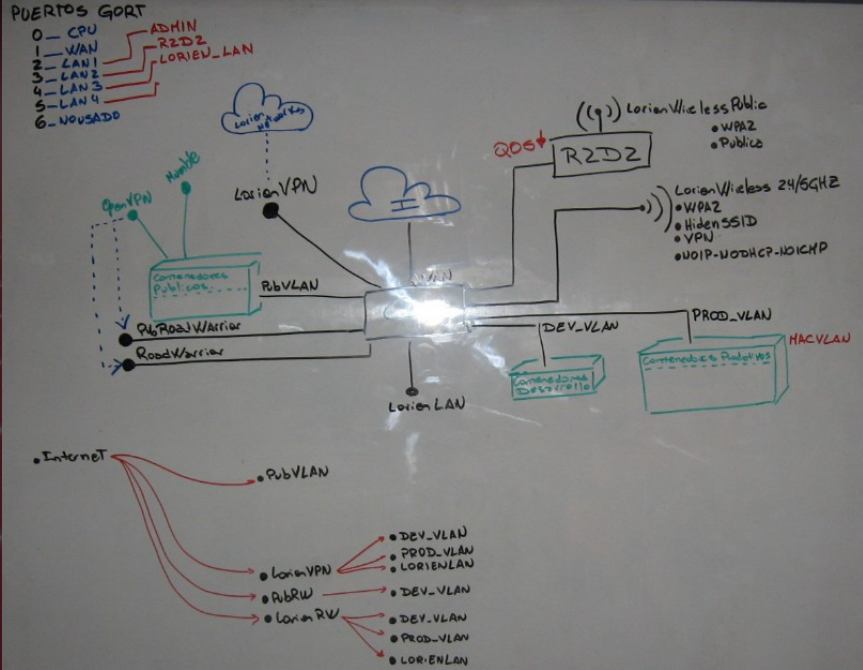 PUERTOS GORT
0_ CPU
1_ WAN
2_LAN1
3_LAN2
4_LAN 3
5_LAN 4
6_NOUSADO
ADMIN
R2D2
LORIEN_LAN
Lorien
Networks
LorienVPN
Mumble
OpenVPN
Contenedores
Publicos
PubVLAN
PubRoadWarrior
RoadWarrior
I
WAN
G
LorienLAN
QOS
R2D2
LorienWirelessPublic
•WPA2
•Publica
LorienWireless 24/5GHZ
•WPA2
•HidenSSID
•VPN
•NOIP-NODHCP-NOICMP
DEV_VLAN
Contenedores
Desarrollo
PROD_VLAN
MACVLAN
Contenedores Produtivos
•Internet
•PubVLAN
•LorienVPN
•DEV_VLAN
•PROD_VLAN
•LORIENLAN
•PubRW
•DEV_VLAN
•LorienRW
•DEV_VLAN
•PROD_VLAN
•LORIENLAN